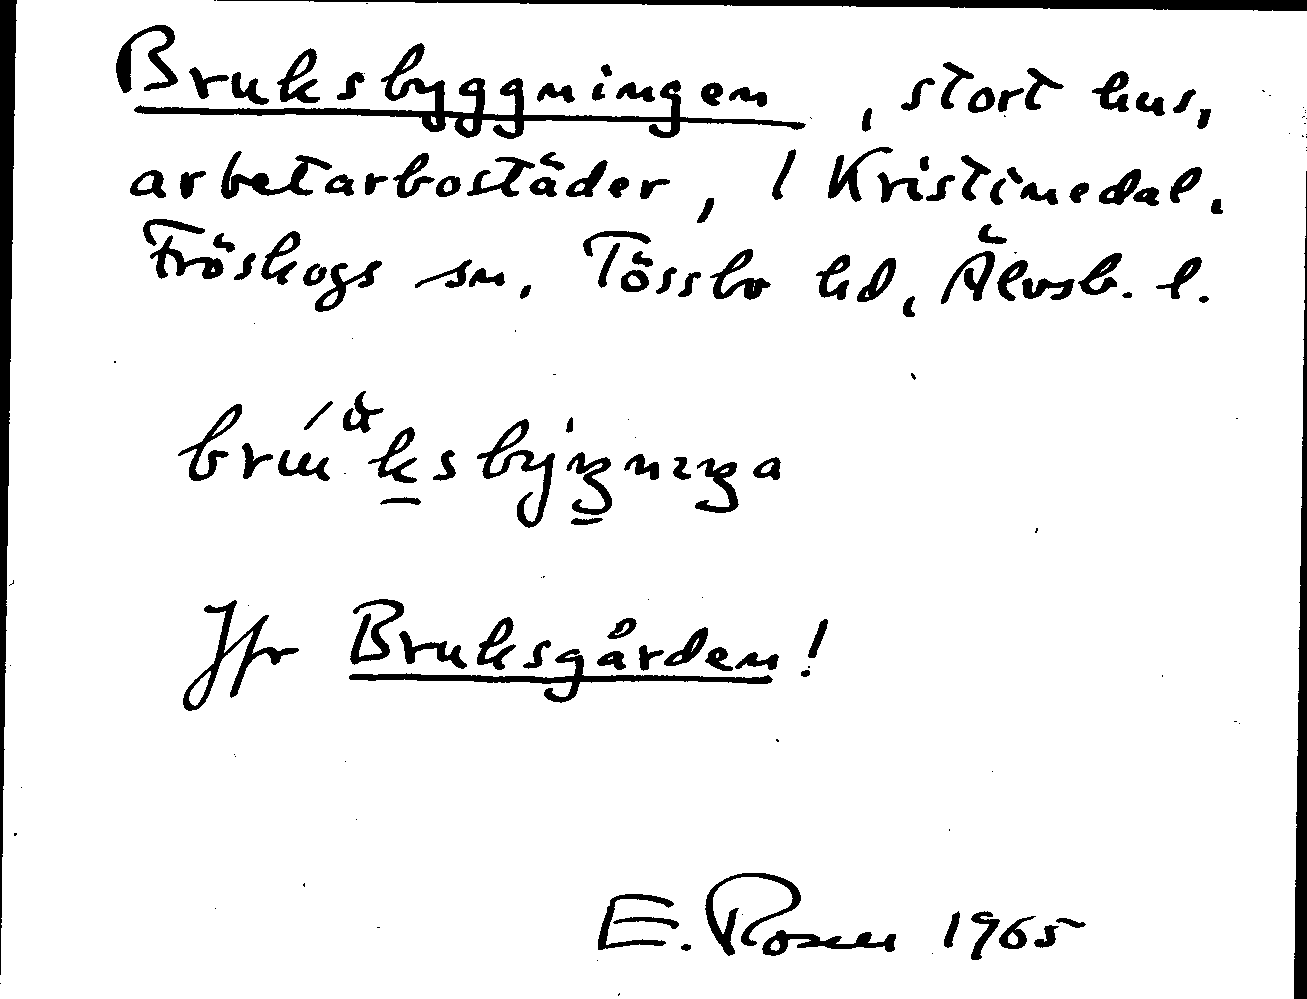 Bruksbyggningen, stort hus,
arbetarbostäder, / Kristinedal.
Fröskogs sn, Tössbo hd, Älvsb. l.
Jfr Bruksgården!
E. Rosen 1965